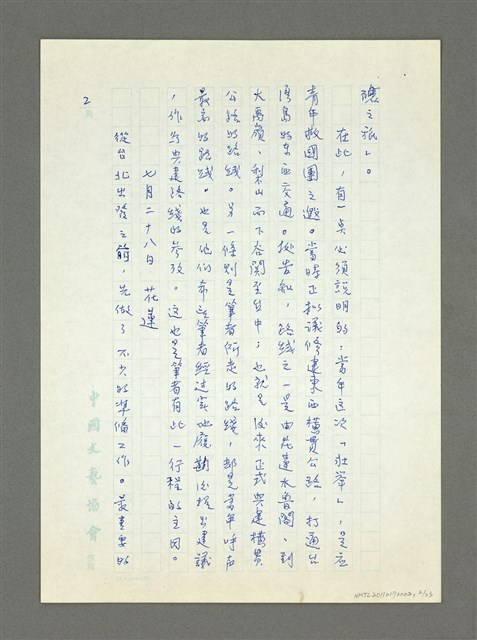 穰之旅」。
在此，有一点必須說明的：當年这次「壯舉」，是应
青年救國團之邀。當時正拟議修建東西橫貫公路，打通台
灣島的东西交通。据告知，路线之一是由花蓮太魯閣、到
大禹嶺、梨山而下谷關至台中；也就是後來正式興建橫貫
公路的路线。另一條則是筆者所走的路线，都是當年呼声
最高的路线。也是他们希望筆者經过实地履勘後提出建議
，作为興建路线的參攷。这也是筆者有此一行程的主因。
七月二十八日 花蓮
從台北出發之前，先做了不少的準備工作。最重要的
2
頁
中國文藝協會
NMTL20110190002, 2/23